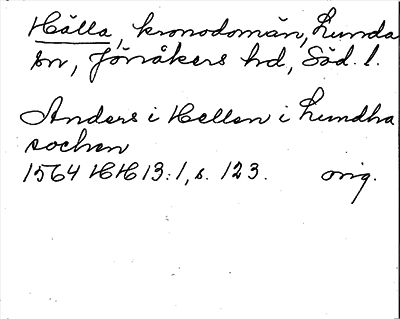 Hälla, kronodomän, Lunda
sn, Jönåkers hd, Söd. l.
Anders i Hellen i Lundha
sochen
1564 HH 13:1, s. 123. orig.